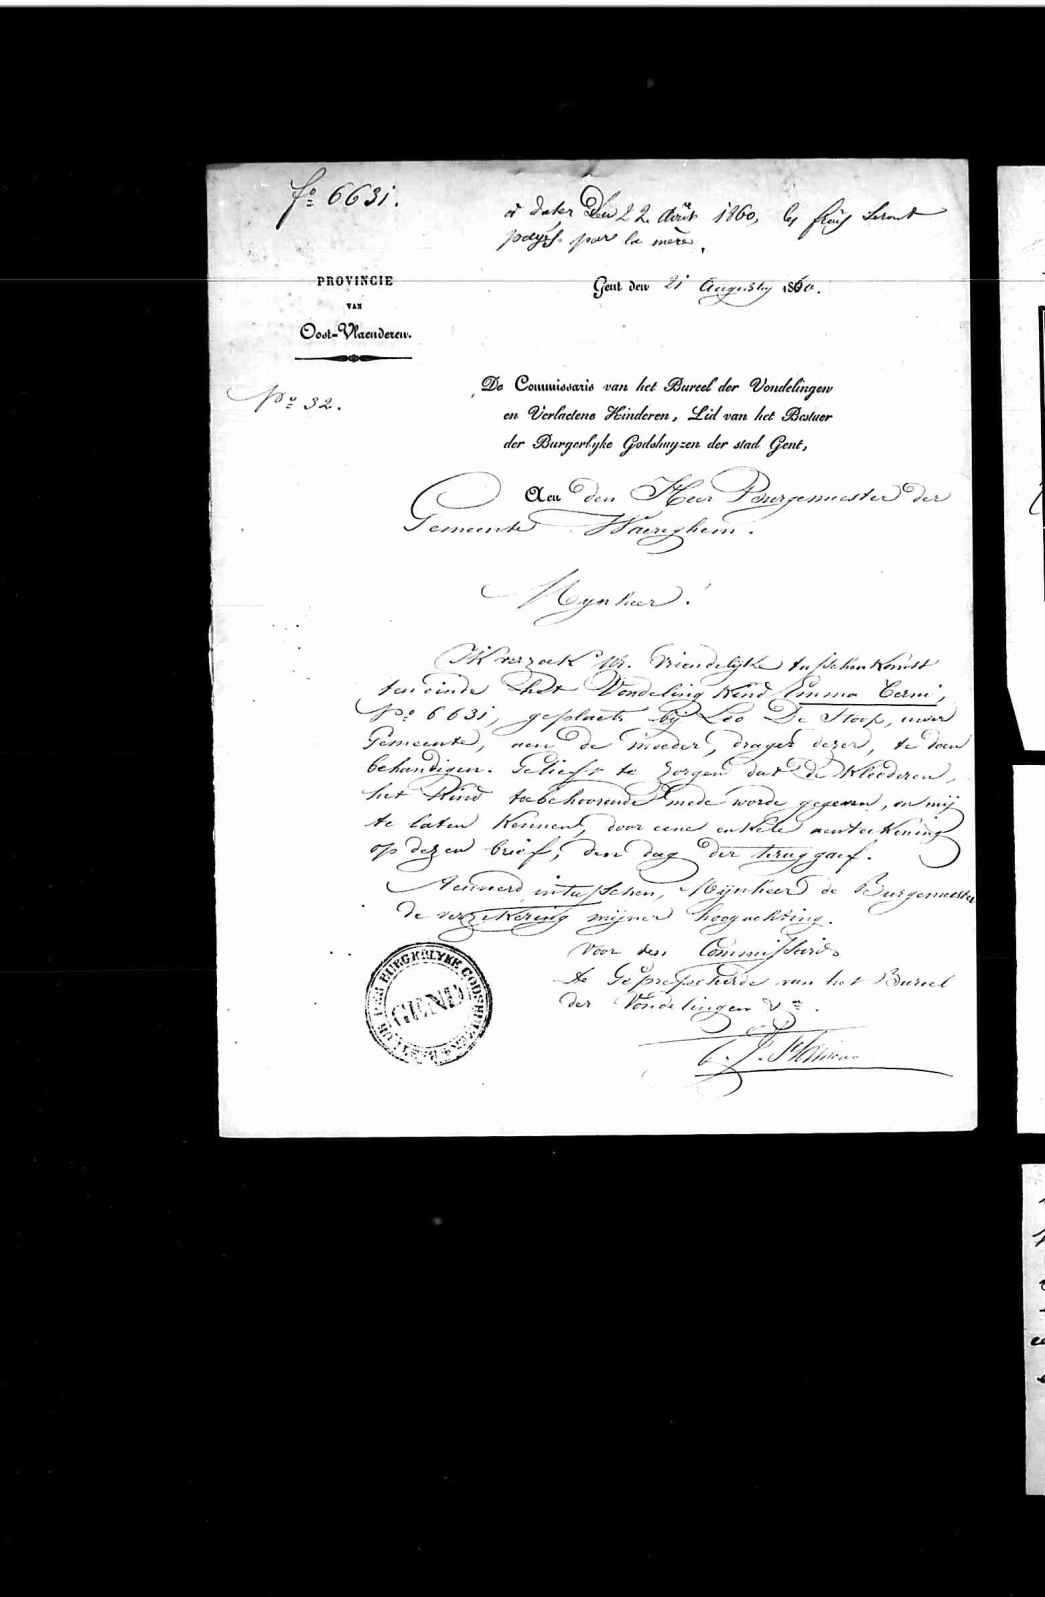 f° 6631.
à dater du 22 Août 1860, les frais seront
payés par la mère.
PROVINCIE
VAN
Oost-Vlaenderen.
Gent den 21 Augusty 1860.
N° 32.
De Commissaris van het Bureel der Vondelingen
en Verlaetene Kinderen, Lid van het Bestuer
der Burgerlyke Godshuyzen der stad Gent,
Aen den Heer Burgemeester der
Gemeente Waereghem.
Mynheer!
Ik verzoek Uw. vriendelyke tusschenkomst
ten einde het Vondeling Kind Emma
N° 6631, geplaets by Leo De Stoop, uwer
Gemeente, aen de moeder, drager dezer, te doen
behandigen. Gelieft te zorgen dat de kleederen,
het Kind toebehoorende mede worde gegeven, en mij
te laten kennen, door eene enkele aenteekening
op dezen brief, den dag der teruggaef.
Aenveerd intusschen, Mijnheer de Burgemeester
de verzekering mijner hoogachting.
Voor den Commissaris
de Geprepseerde van het Bureel
der Vondelingen
BESTUUR DER BURGERLYKE GODSHUIZEN
GEND